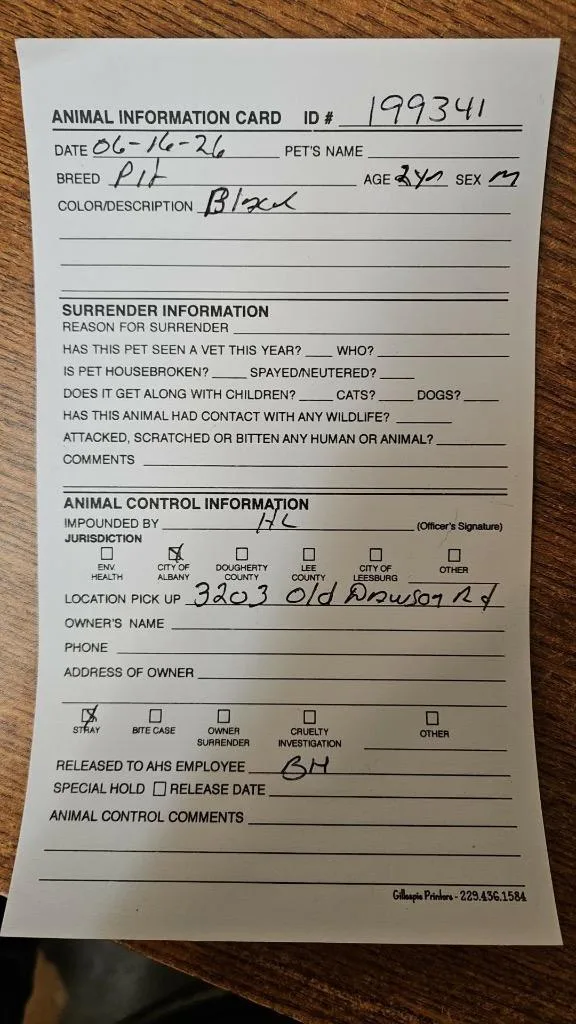 ANIMAL INFORMATION CARD ID # 199341
DATE 06-16-26 PET'S NAME
BREED Pit AGE 2yr SEX M
COLOR/DESCRIPTION Black
SURRENDER INFORMATION
REASON FOR SURRENDER
HAS THIS PET SEEN A VET THIS YEAR? WHO?
IS PET HOUSEBROKEN? SPAYED/NEUTERED?
DOES IT GET ALONG WITH CHILDREN? CATS? DOGS?
HAS THIS ANIMAL HAD CONTACT WITH ANY WILDLIFE?
ATTACKED, SCRATCHED OR BITTEN ANY HUMAN OR ANIMAL?
COMMENTS
ANIMAL CONTROL INFORMATION
IMPOUNDED BY HL (Officer's Signature)
JURISDICTION
ENV. HEALTH CITY OF ALBANY DOUGHERTY COUNTY LEE COUNTY CITY OF LEESBURG OTHER
LOCATION PICK UP 3203 Old Dawson Rd
OWNER'S NAME
PHONE
ADDRESS OF OWNER
STRAY BITE CASE OWNER SURRENDER CRUELTY INVESTIGATION OTHER
RELEASED TO AHS EMPLOYEE BH
SPECIAL HOLD RELEASE DATE
ANIMAL CONTROL COMMENTS
Gillespie Printers - 229.436.1584